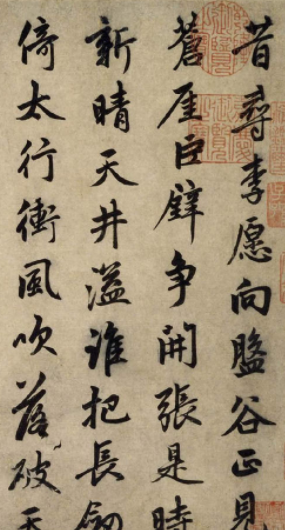 昔尋李愿向盤谷正見
蒼厓巨壁争開張是時
新晴天井溢誰把長劒
倚太行衝風吹落破天